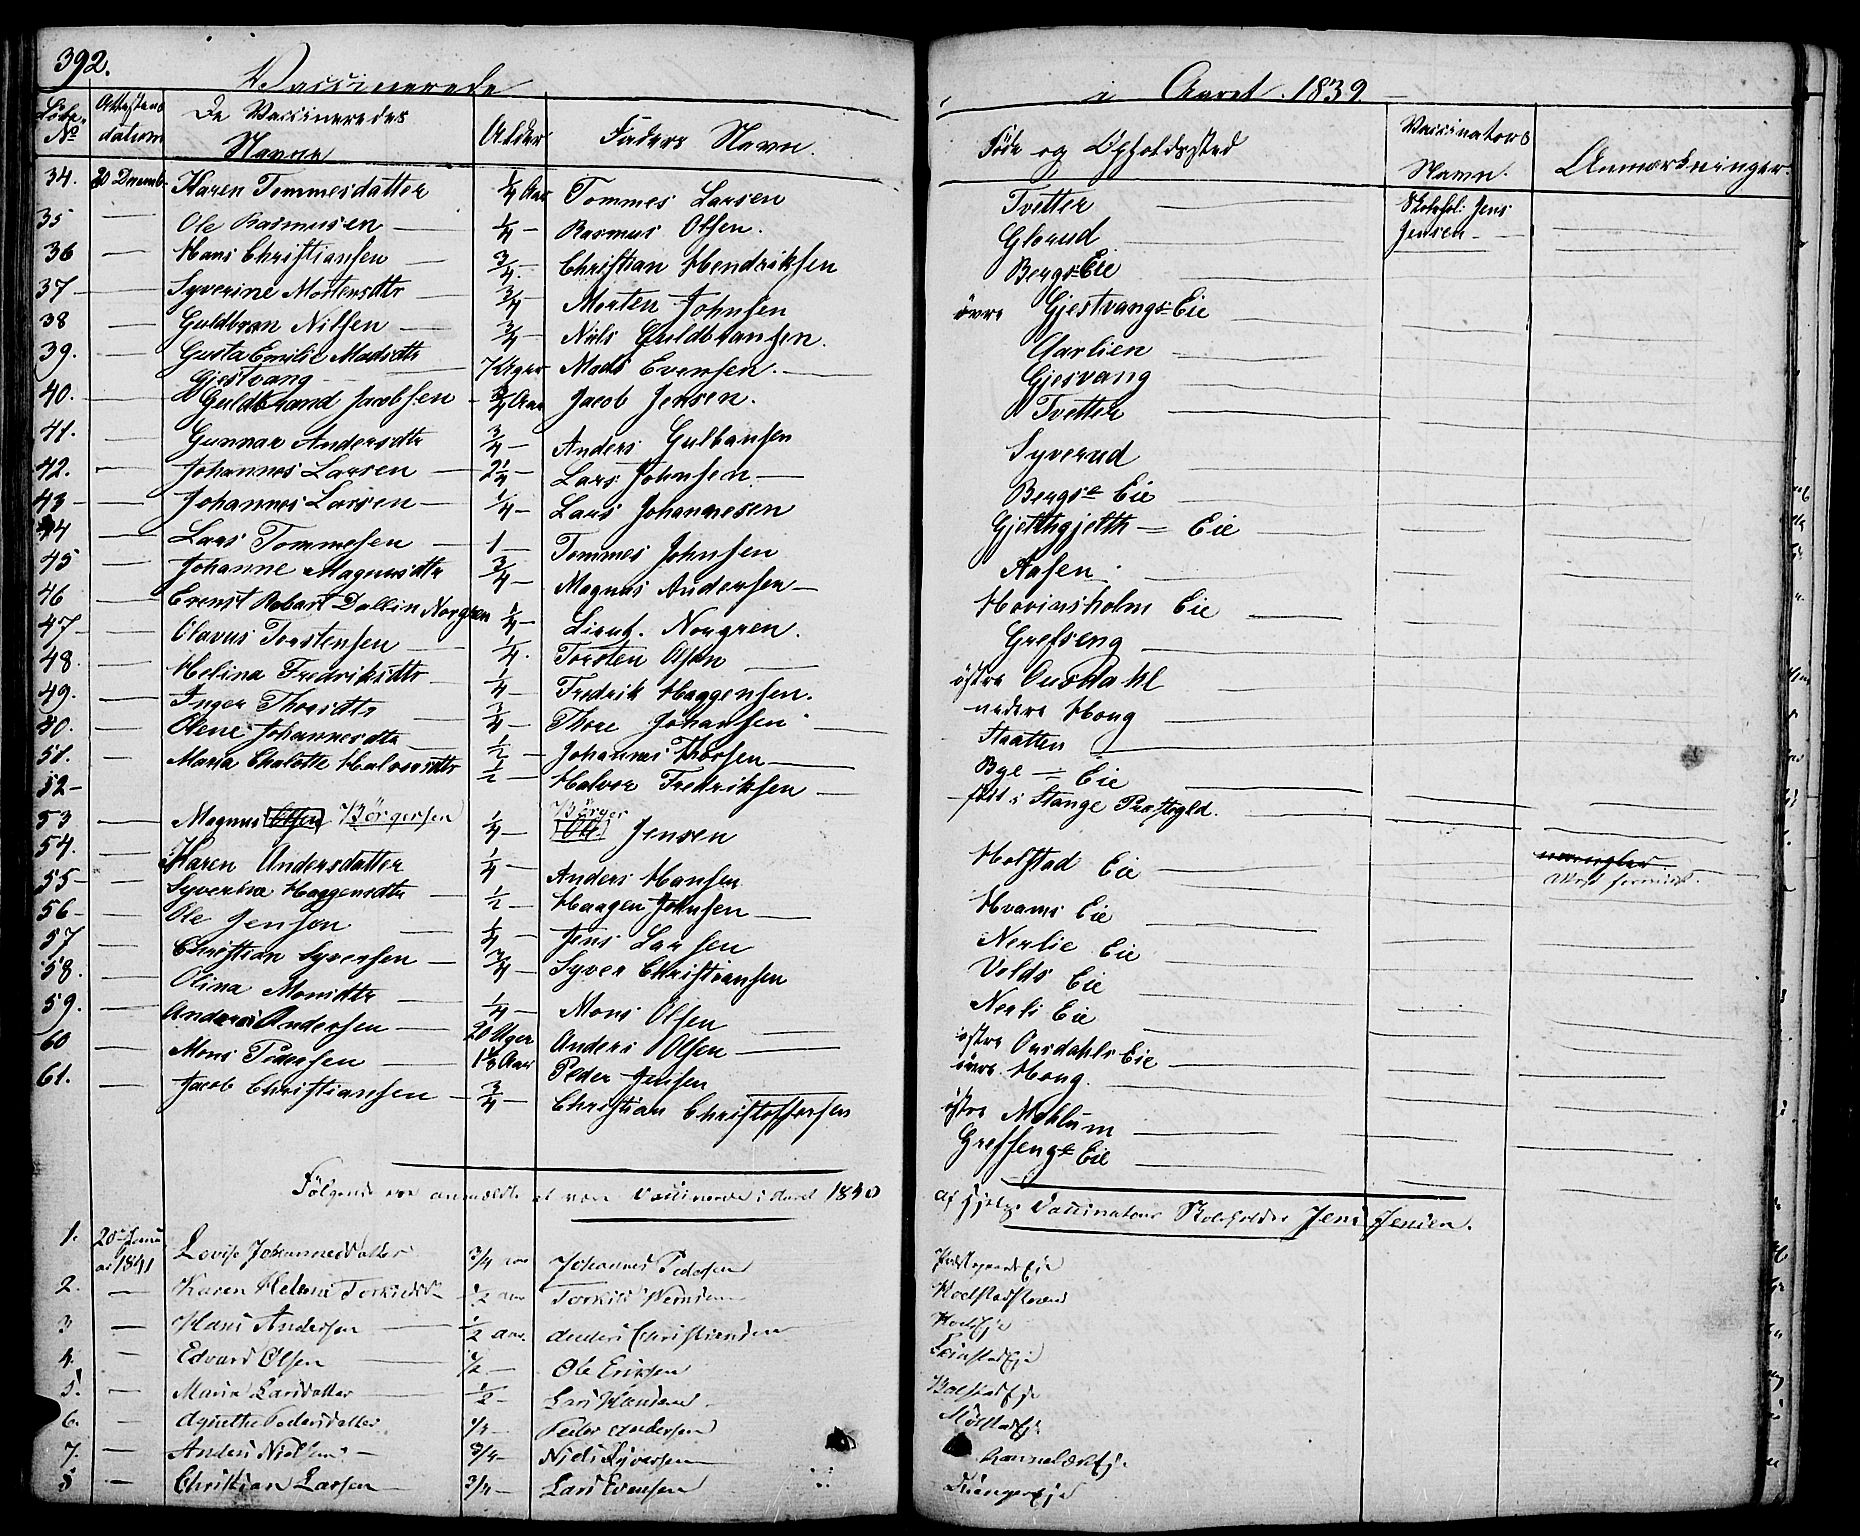 392.
Vaccinerede i Aaret 1839.
Løbe No Attestens datum De Vaccineredes Navne Alder Faders Navn. Føde og Opholdssted Vaccinators Navn. Anmærkninger.
34. 20 Decemb. Karen Tommesdatter 1/4 Aar Tommes Larsen Tvetter Skolehol: Jens Jensen
35 — Ole Rasmusen 1/4 — Rasmus Olsen. Glorud
36 — Hans Christiansen 3/4 — Christian Hendriksen Bergs=Eie
37 — Syverine Mortensdtr 3/4 Morten Johnsen övre Gjestvangs=Eie
38 — Guldbran Nilsen 3/4 — Niels Guldbransen. Aarlien
39. — Gusta Emilie Madsdtr Gjestvang 7 Uger Mads Evensen. Gjesvang
40. — Guldbrand Jacobsen 3/4 Aar Jacob Jensen. Tvetter
41. — Gunnar Andersdtr 3/4 — Anders Gulbansen Syverud
42. — Johannes Larsen 2 1/4 — Lars Johnsen Bergs= Eie
43 — Johannes Larsen 1/4 — Lars Johannesen Gjetthgjelth — Eie
44 — Lars Tommesen 1 — Tommes Johnsen Aasen
45 — Johanne Magnusdtr 3/4 — Magnus Andersen Hovinsholm Eie
46 — Ernst Robart Dallin Norgren 1/4 — Lieut. Norgren. Grefseng
47 — Olavus Torstensen 1/4. Torsten Olsen östre Ousdahl
48. — Helina Fredriksdtr 1/4 — Fredrik Haggensen. nedre Hong
49. — Inger Thorsdtr 3/4 — Thore Johansen Staatten
50. — Olene Johannesdtr 1/2 — Johannes Thorsen Bye — Eie
51. — Maria Chalotte Halvorsdtr 1/2 — Halvor Fredriksen född i Stange Præstegjeld.
52 —
53 — Magnus Olsen Börgersen 1/4 — Börger Ole Jensen Holstad Eie
54. — Karen Andersdatter 1/4 — Anders Hansen Hvams Eie
55 — Syverine Haggensdtr 1/2 — Haagen Johnsen Nerlie Eie
56 — Ole Jensen 1/4 — Jens Larsen Volds Eie
57 — Christian Syversen 3/4 — Syver Christiansen Nerli Eie
58. — Olina Monsdtr 1/4 — Mons Olsen östre Ousdahls Eie
59. — Anders Andersen 20 Uger Anders Olsen övre Hong.
60 — Mons Pedersen 1 1/2 Aar Peder Jensen östre Mehlum
61. — Jacob Christiansen 3/4 — Christian Christoffersen Greffengs Eie
Følgende ere anmeldte at være Vaccinerede i Aaret 1840 af Hjelpe Vaccinateur Skoleholder Jens Jensen.
1. 20de Juni 1841 Lovise Johannesdatter 3/4 aar Johannes Pedersen
2. — Karen Helene Torkildsd. 1/2 aar Torkild
3 — Hans Andersen 1/2 aar. Anders Christiansen
4. — Edvard Olsen 1/2 — Ole Eriksen
5. — Maria Larsdatter 1/2 Lars Hansen
6. — Agnethe Pedersdatter 1/4 — Peder Andersen
7. — Anders Nielsen 3/4 — Niels Syversen
8 — Christian Larsen 3/4 — Lars Evensen